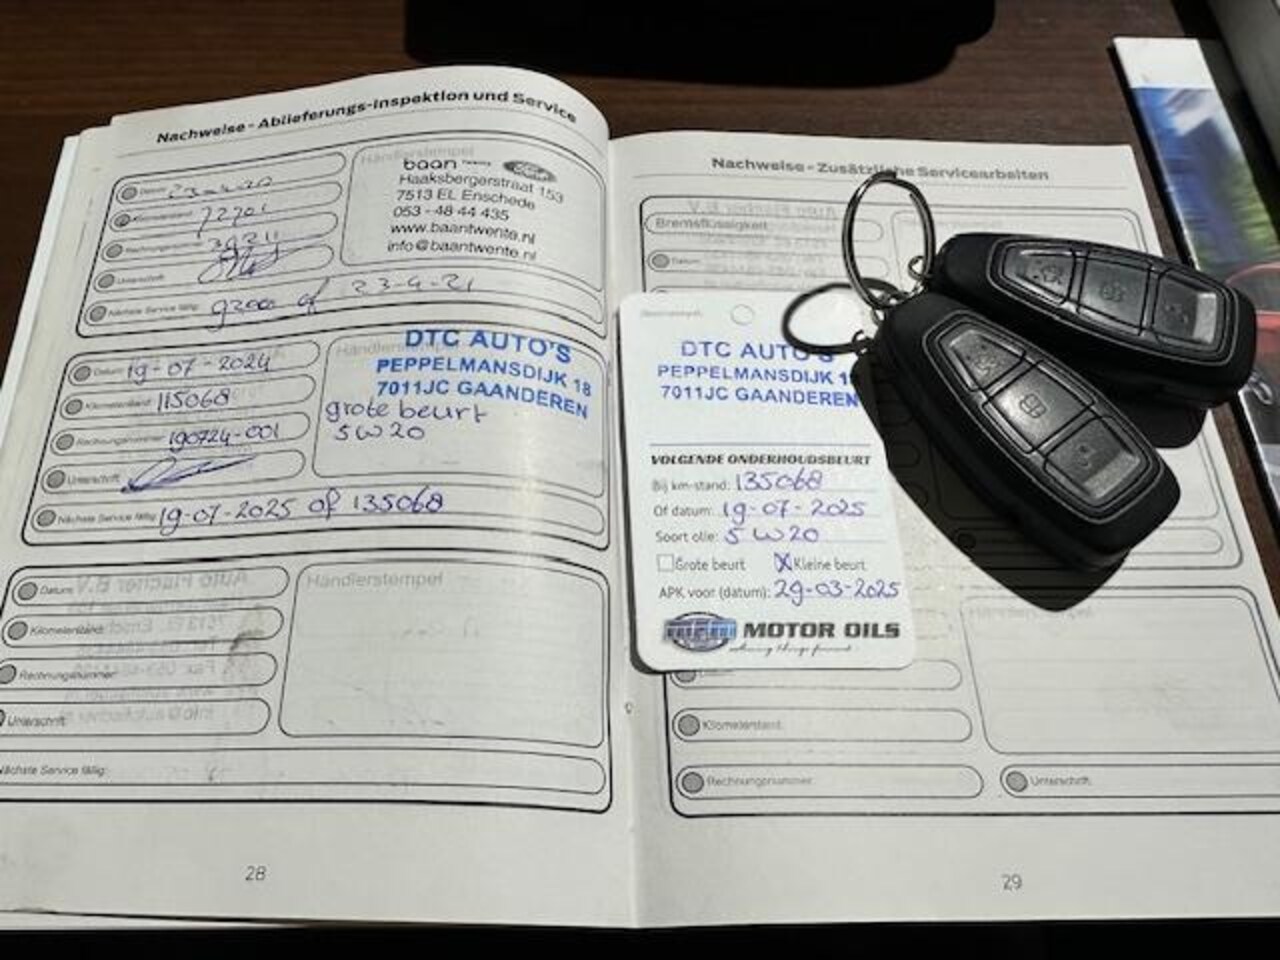 Nachweise - Ablieferungs-Inspektion und Service
Datum: 23-4-20
Kilometerstand: 72701
Rechnungsnummer:
Unterschrift:
Nächste Service fällig: 92000 of 23-4-21
Händlerstempel
baan twente
Haaksbergerstraat 153
7513 EL Enschede
053 - 48 44 435
www.baantwente.nl
info@baantwente.nl
Datum: 19-07-2024
Kilometerstand: 115068
Rechnungsnummer: 190724-001
Unterschrift:
Nächste Service fällig: 19-07-2025 of 135068
Händlerstempel
DTC AUTO'S
PEPPELMANSDIJK 18
7011JC GAANDEREN
grote beurt
5W20
Datum:
Kilometerstand:
Rechnungsnummer:
Unterschrift:
Nächste Service fällig:
Händlerstempel
28
Nachweise - Zusätzliche Servicearbeiten
Bremsflüssigkeit
Datum:
DTC AUTO'S
PEPPELMANSDIJK 1
7011JC GAANDEREN
VOLGENDE ONDERHOUDSBEURT
Bij km-stand: 135068
Of datum: 19-07-2025
Soort olie: 5W20
Grote beurt X Kleine beurt
APK voor (datum): 29-03-2025
MPM MOTOR OILS
Datum:
Kilometerstand:
Rechnungsnummer:
Unterschrift:
29